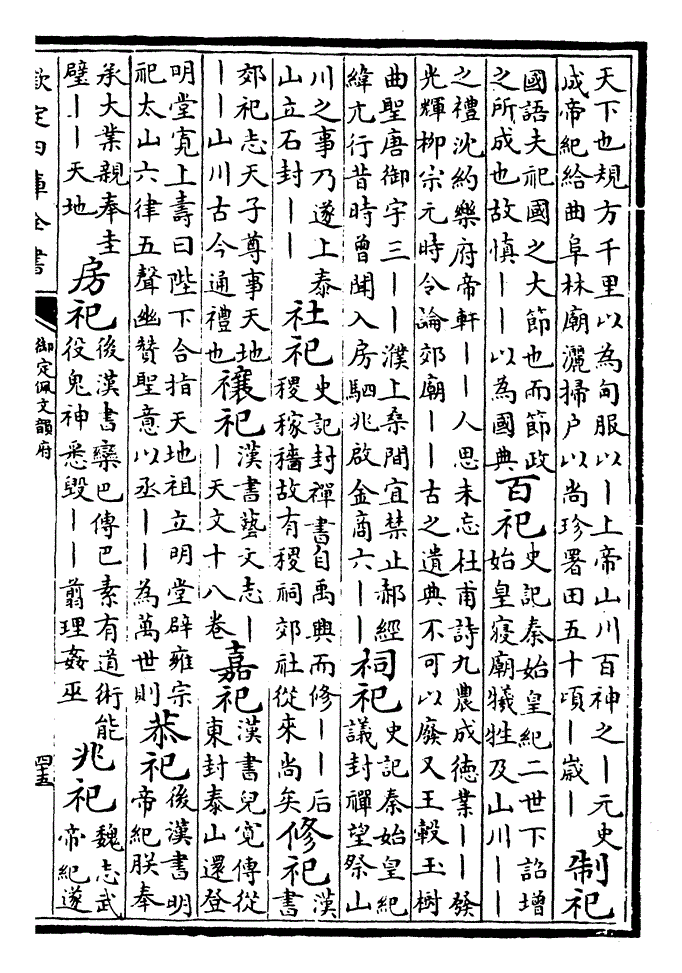 天下也規方千里以為甸服以丨上帝山川百神之丨元史
成帝紀給曲阜林廟灑掃户以尚珍署田五十頃丨歲丨
制祀
國語夫祀國之大節也而節政
之所成也故慎丨丨以為國典
百祀
史記秦始皇紀二世下詔增
始皇寢廟犧牲及山川丨丨
之禮沈約樂府帝軒丨丨人思未忘杜甫詩九農成德業丨丨發
光輝柳宗元時令論郊廟丨丨古之遺典不可以廢又王轂玉樹
曲聖唐御宇三丨丨濮上桑間宜禁止郝經
緯亢行昔時曾聞入房駟兆啟金商六丨丨
祠祀
史記秦始皇紀
議封禪望祭山
川之事乃遂上泰
山立石封丨丨
社祀
史記封禪書自禹興而修丨丨后
稷稼穡故有稷祠郊社從來尚矣
修祀
漢
書
郊祀志天子尊事天地
丨丨山川古今通禮也
禳祀
漢書藝文志丨
丨天文十八卷
嘉祀
漢書兒寛傳從
東封泰山還登
明堂寛上壽曰陛下合指天地祖立明堂辟雍宗
祀太山六律五聲幽贊聖意以丞丨丨為萬世則
恭祀
後漢書明
帝紀朕奉
承大業親奉圭
璧丨丨天地
房祀
後漢書欒巴傳巴素有道術能
役鬼神悉毁丨丨翦理姦巫
兆祀
魏志武
帝紀遂
欽定四庫全書
御定佩文韻府
四五